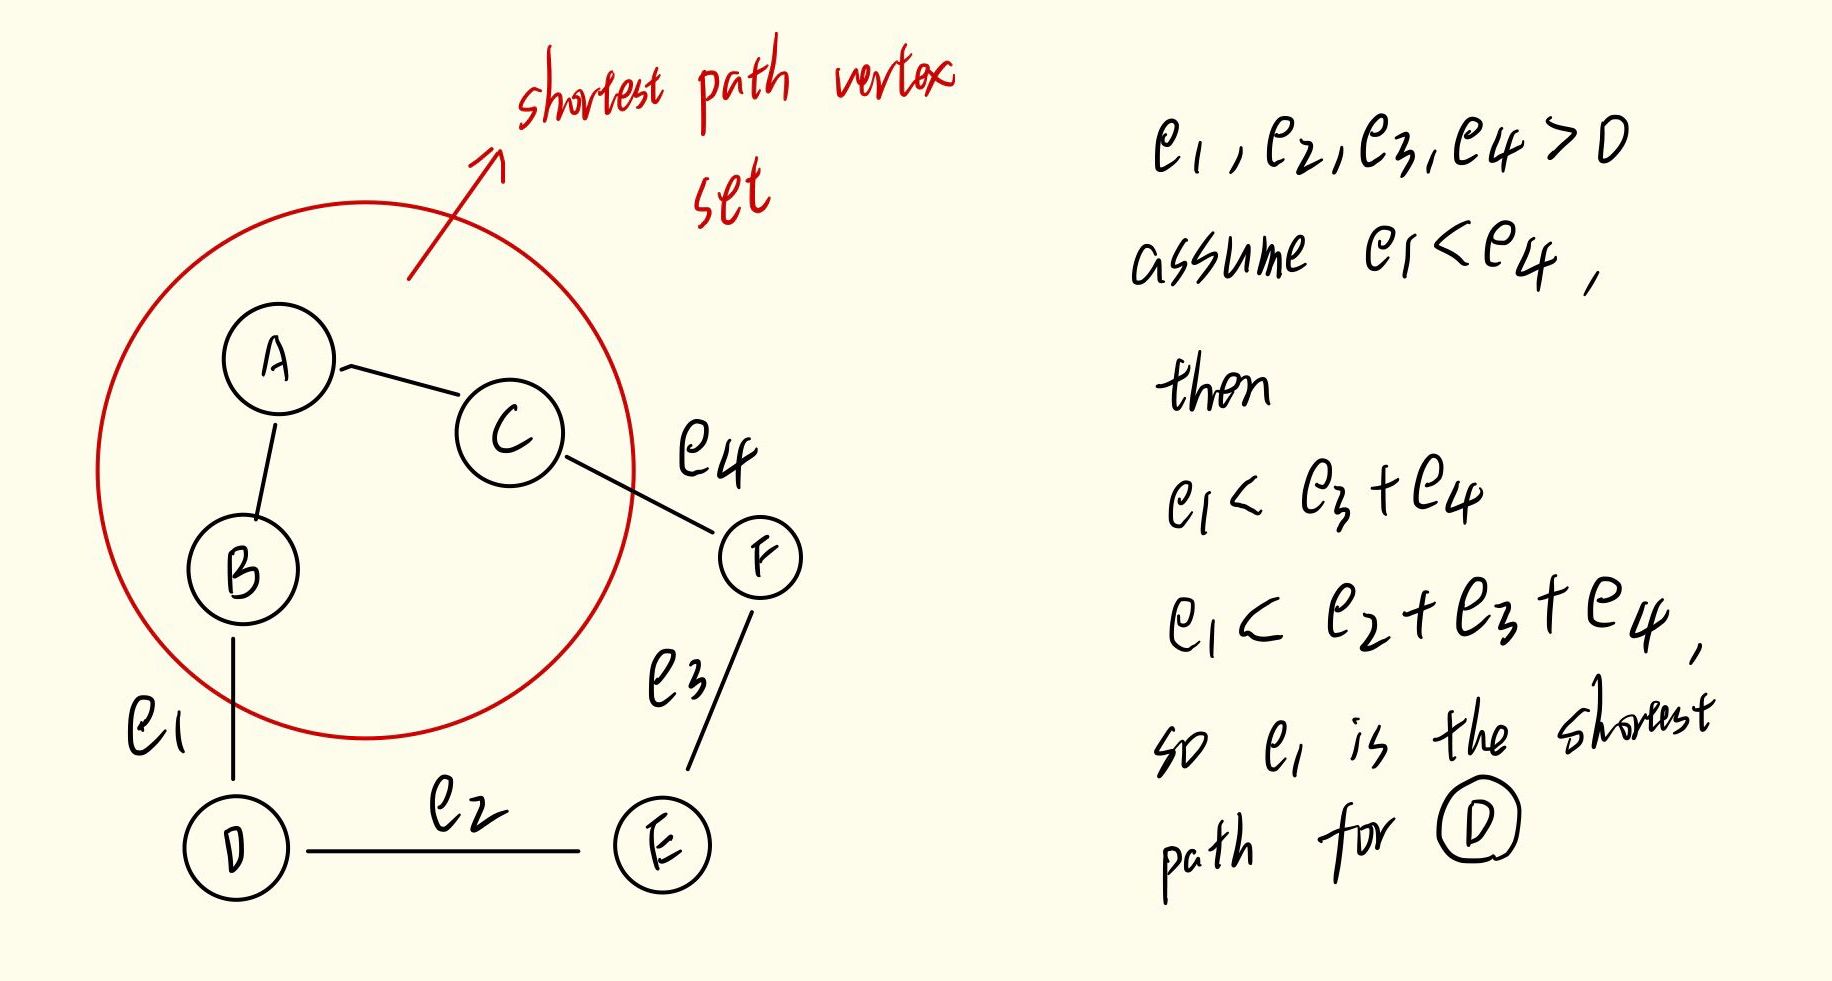 shortest path vertex
set
A
C
e4
F
B
e3
e1
e2
D
E
e1, e2, e3, e4 > 0
assume e1 < e4,
then
e1 < e3 + e4
e1 < e2 + e3 + e4,
so e1 is the shortest
path for D